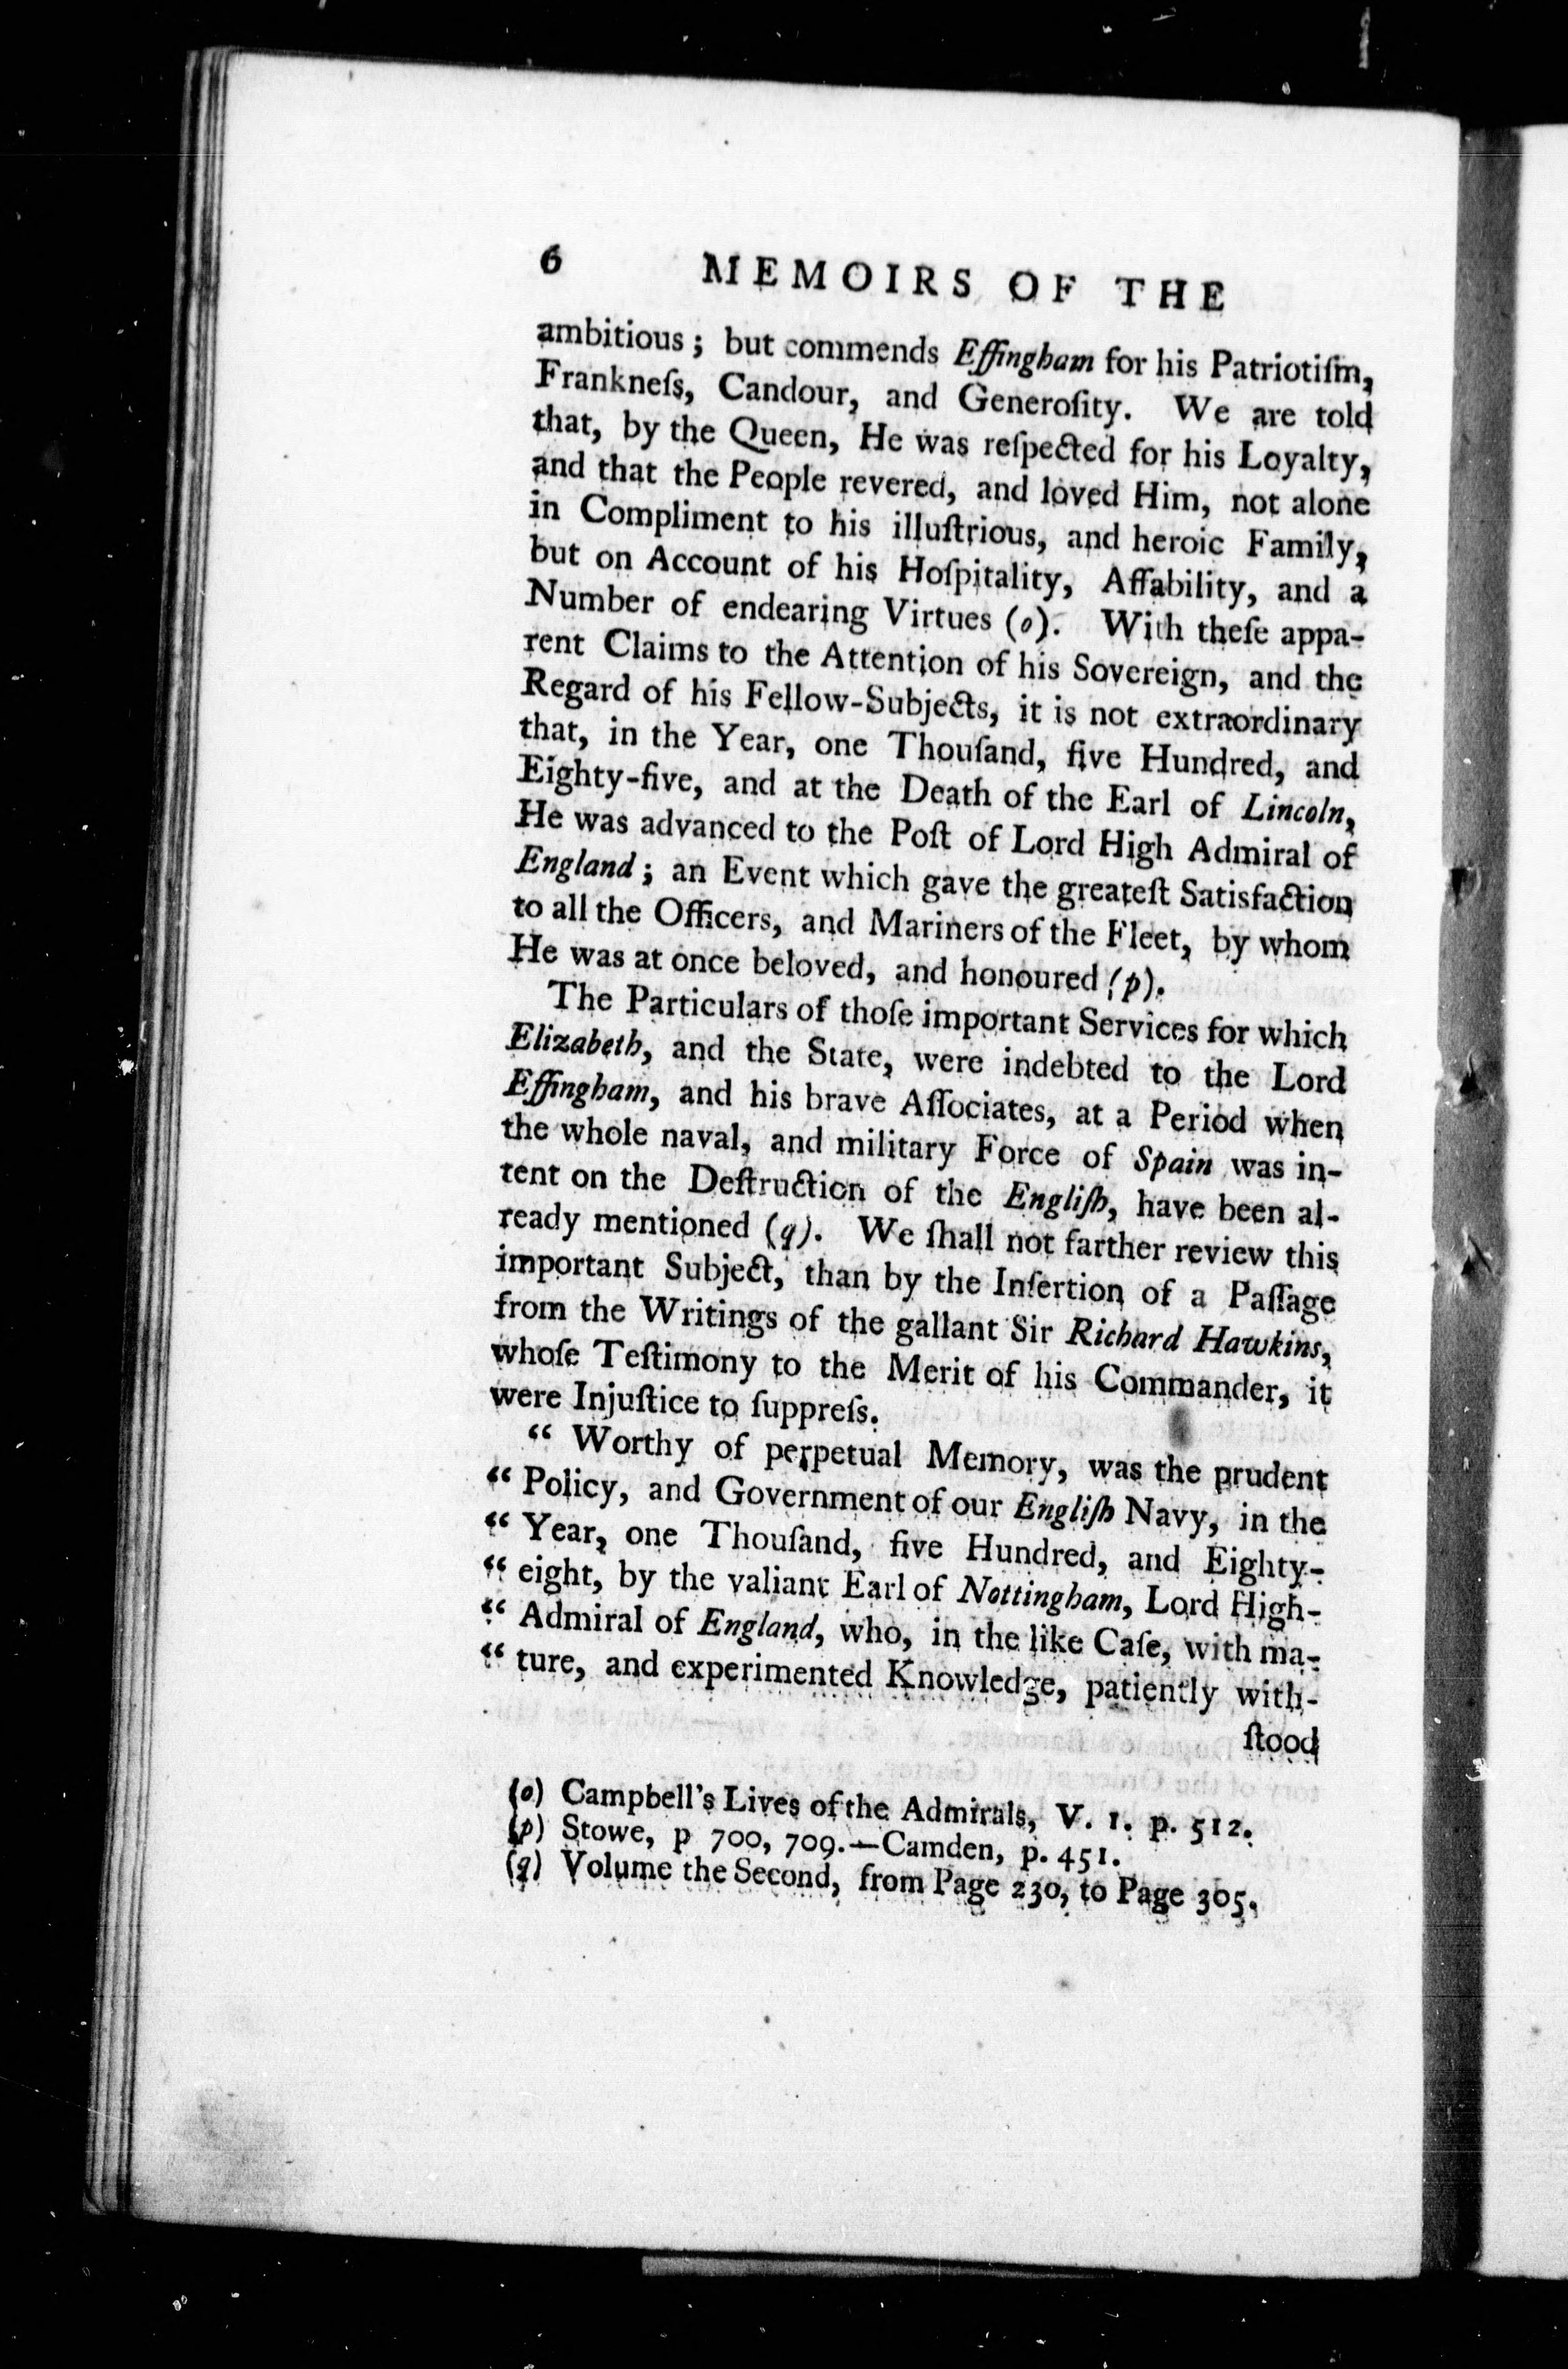 6 MEMOIRS OF THE
ambitious; but commends Effingham for his Patriotiſm,
Frankneſs, Candour, and Generoſity. We are told
that, by the Queen, He was reſpected for his Loyalty,
and that the People revered, and loved Him, not alone
in Compliment to his illuſtrious, and heroic Family,
but on Account of his Hoſpitality, Affability, and a
Number of endearing Virtues (o). With theſe appa-
rent Claims to the Attention of his Sovereign, and the
Regard of his Fellow-Subjects, it is not extraordinary
that, in the Year, one Thouſand, five Hundred, and
Eighty-five, and at the Death of the Earl of Lincoln,
He was advanced to the Poſt of Lord High Admiral of
England; an Event which gave the greateſt Satisfaction
to all the Officers, and Mariners of the Fleet, by whom
He was at once beloved, and honoured (p).
The Particulars of thoſe important Services for which
Elizabeth, and the State, were indebted to the Lord
Effingham, and his brave Aſſociates, at a Period when
the whole naval, and military Force of Spain was in-
tent on the Deſtruction of the Engliſh, have been al-
ready mentioned (q). We ſhall not farther review this
important Subject, than by the Inſertion of a Paſſage
from the Writings of the gallant Sir Richard Hawkins,
whoſe Teſtimony to the Merit of his Commander, it
were Injuſtice to ſuppreſs.
“ Worthy of perpetual Memory, was the prudent
“ Policy, and Government of our Engliſh Navy, in the
“ Year, one Thouſand, five Hundred, and Eighty-
“ eight, by the valiant Earl of Nottingham, Lord High-
“ Admiral of England, who, in the like Caſe, with ma-
“ ture, and experimented Knowledge, patiently with-
ſtood
(o) Campbell's Lives of the Admirals, V. 1. p. 512.
(p) Stowe, p 700, 709.—Camden, p. 451.
(q) Volume the Second, from Page 230, to Page 305.